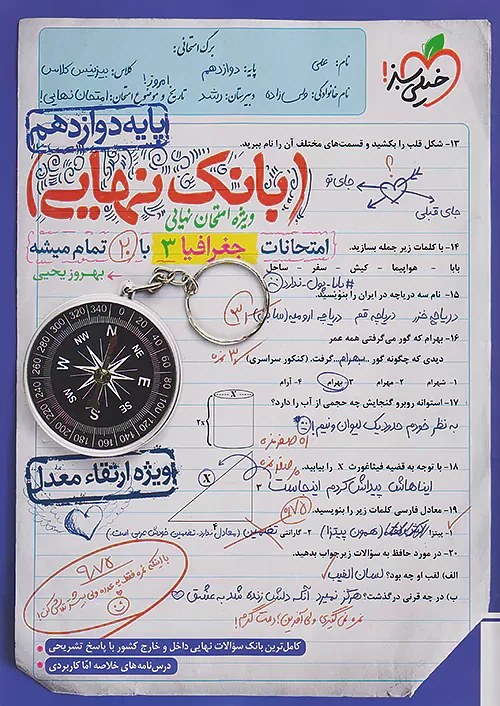 برگ امتحانی:
نام: علمی
پایه: دوازدهم
کلاس: بیزینس کلاس
نام خانوادگی:
دبیرستان: رشد
تاریخ و موضوع امتحان: امروز! امتحان نهایی!
خیلی سبز!
پایه دوازدهم
(بانک نهایی)
ویژه امتحان نهایی
امتحانات جغرافیا ۳ با ۲۰ تمام میشه
بهروز یحیی
۱۳- شکل قلب را بکشید و قسمت‌های مختلف آن را نام ببرید.
؟
جای تو
جای قبلی
۱۴- با کلمات زیر جمله بسازید.
بابا - هواپیما - کیش - سفر - ساحل
#بابا-پول-ندارد
۱۵- نام سه دریاچه در ایران را بنویسید.
دریاچه خزر دریاچه قم دریاچه ارومیه
۱۶- بهرام که گور می‌گرفتی همه عمر
دیدی که چگونه گور ..بهرام.. گرفت. (کنکور سراسری)
۱- شهرام ۲- مهرام ۳- بهرام ۴- آرام
۱۷- استوانه روبرو گنجایش چه حجمی از آب را دارد؟
به نظر خودم حدود یک لیوان و نیم!
X
2X
۱۸- با توجه به قضیه فیثاغورث X را بیابید.
ایناهاش پیداش کردم اینجاست
X
۳
۴
۱۹- معادل فارسی کلمات زیر را بنویسید.
۱- پیتزا (همون پیتزا) ۲- گارانتی تضمین (معادل ندارد. تضمین خودش عربی است.)
۲۰- در مورد حافظ به سؤالات زیر جواب بدهید.
الف) لقب او چه بود؟ لسان الغیب
ب) در چه قرنی درگذشت؟ هرگز نمیرد آنکه دلش زنده شد به عشق
نمره نمی‌گیری ولی آفرین! دمت گرم!
N
NE
E
SE
S
SW
W
NW
ویژه ارتقاء معدل
کامل‌ترین بانک سؤالات نهایی داخل و خارج کشور با پاسخ تشریحی
درس‌نامه‌های خلاصه امّا کاربردی